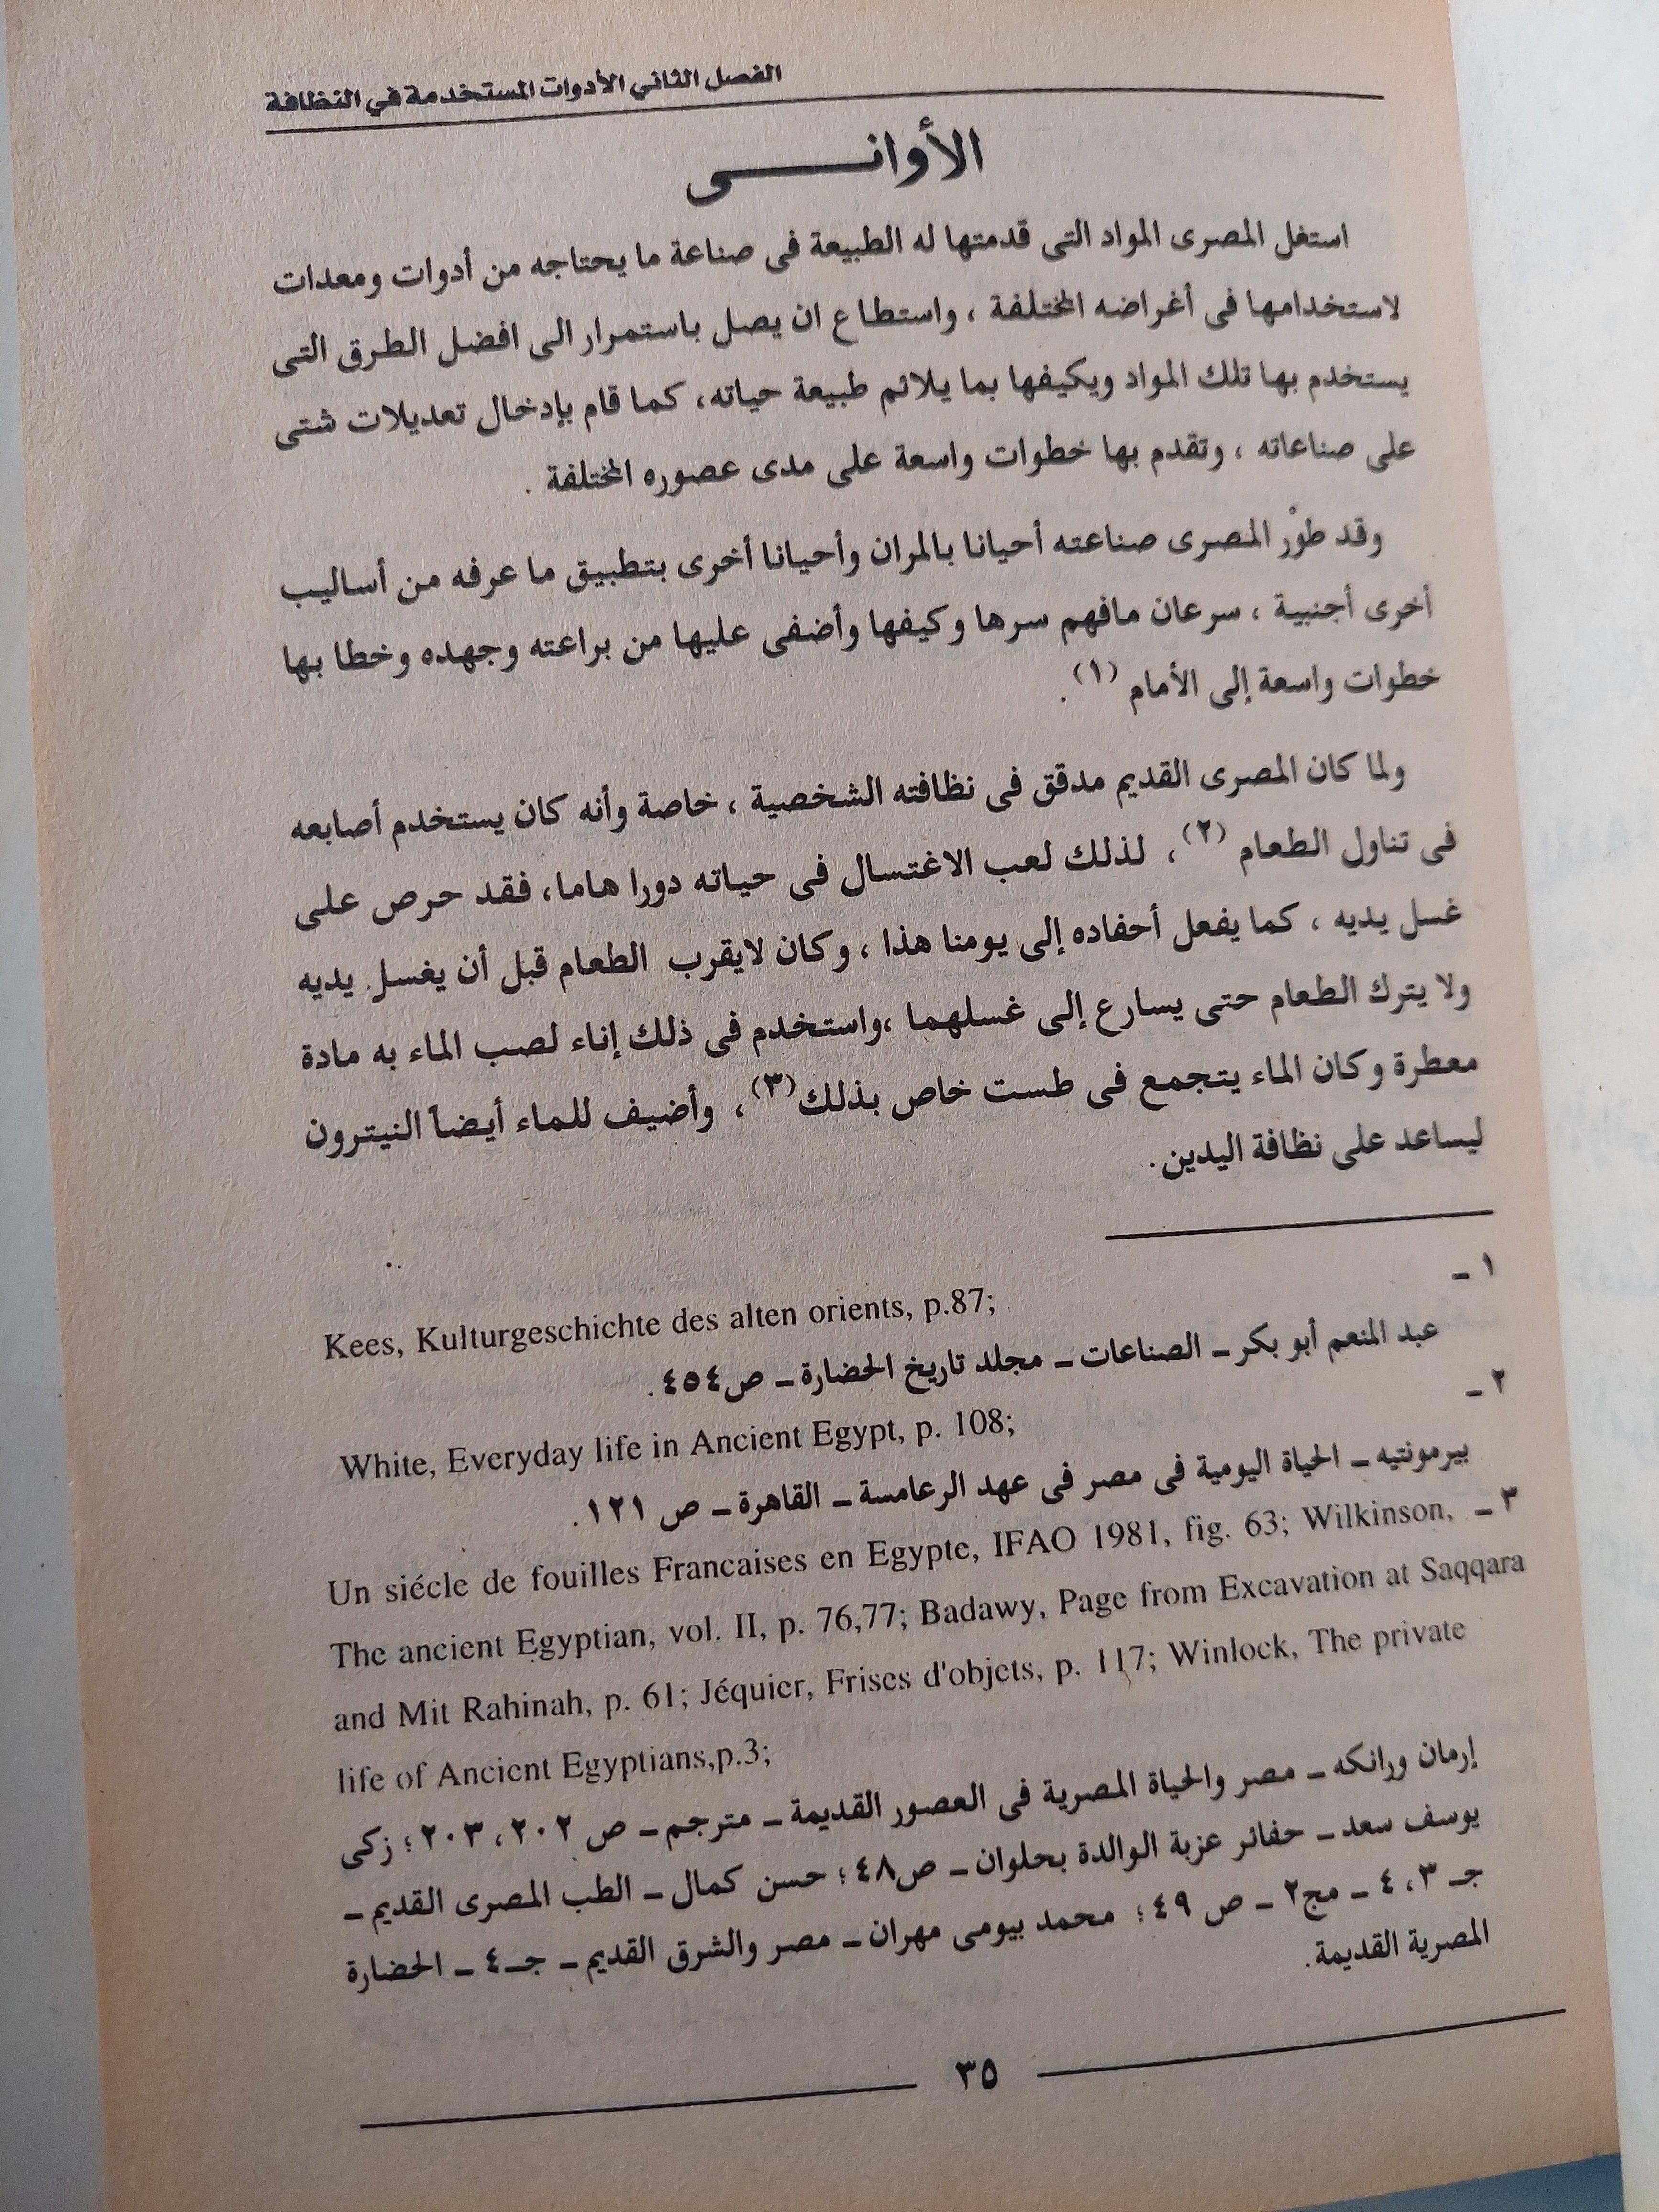 الفصل الثاني الأدوات المستخدمة في النظافة
الأوانـــــــى
استغل المصرى المواد التى قدمتها له الطبيعة فى صناعة ما يحتاجه من أدوات ومعدات
لاستخدامها فى أغراضه المختلفة ، واستطاع ان يصل باستمرار الى افضل الطرق التى
يستخدم بها تلك المواد ويكيفها بما يلائم طبيعة حياته، كما قام بإدخال تعديلات شتى
على صناعاته ، وتقدم بها خطوات واسعة على مدى عصوره المختلفة .
وقد طوْر المصرى صناعته أحيانا بالمران وأحيانا أخرى بتطبيق ما عرفه من أساليب
أخرى أجنبية ، سرعان مافهم سرها وكيفها وأضفى عليها من براعته وجهده وخطا بها
خطوات واسعة إلى الأمام (١).
ولما كان المصرى القديم مدقق فى نظافته الشخصية ، خاصة وأنه كان يستخدم أصابعه
فى تناول الطعام (٢)، لذلك لعب الاغتسال فى حياته دورا هاما، فقد حرص على
غسل يديه ، كما يفعل أحفاده إلى يومنا هذا ، وكان لايقرب الطعام قبل أن يغسل يديه
ولا يترك الطعام حتى يسارع إلى غسلهما ،واستخدم فى ذلك إناء لصب الماء به مادة
معطرة وكان الماء يتجمع فى طست خاص بذلك(٣)، وأضيف للماء أيضاً النيترون
ليساعد على نظافة اليدين.
١ ـ
Kees, Kulturgeschichte des alten orients, p.87;
عبد المنعم أبو بكر ـ الصناعات ـ مجلد تاريخ الحضارة ـ ص٤٥٤.
٢ ـ
White, Everyday life in Ancient Egypt, p. 108;
بيرمونتيه ـ الحياة اليومية فى مصر فى عهد الرعامسة ـ القاهرة ـ ص ١٢١.
٣ ـ Un siécle de fouilles Francaises en Egypte, IFAO 1981, fig. 63; Wilkinson,
The ancient Egyptian, vol. II, p. 76,77; Badawy, Page from Excavation at Saqqara
and Mit Rahinah, p. 61; Jéquier, Frises d'objets, p. 117; Winlock, The private
life of Ancient Egyptians,p.3;
إرمان ورانكه ـ مصر والحياة المصرية فى العصور القديمة ـ مترجم ـ ص ٢٠٢، ٢٠٣؛ زكى
يوسف سعد ـ حفائر عزبة الوالدة بحلوان ـ ص٤٨؛ حسن كمال ـ الطب المصرى القديم ـ
جـ ٣، ٤ ـ مج٢ ـ ص ٤٩؛ محمد بيومى مهران ـ مصر والشرق القديم ـ جـ٤ ـ الحضارة
المصرية القديمة.
٣٥